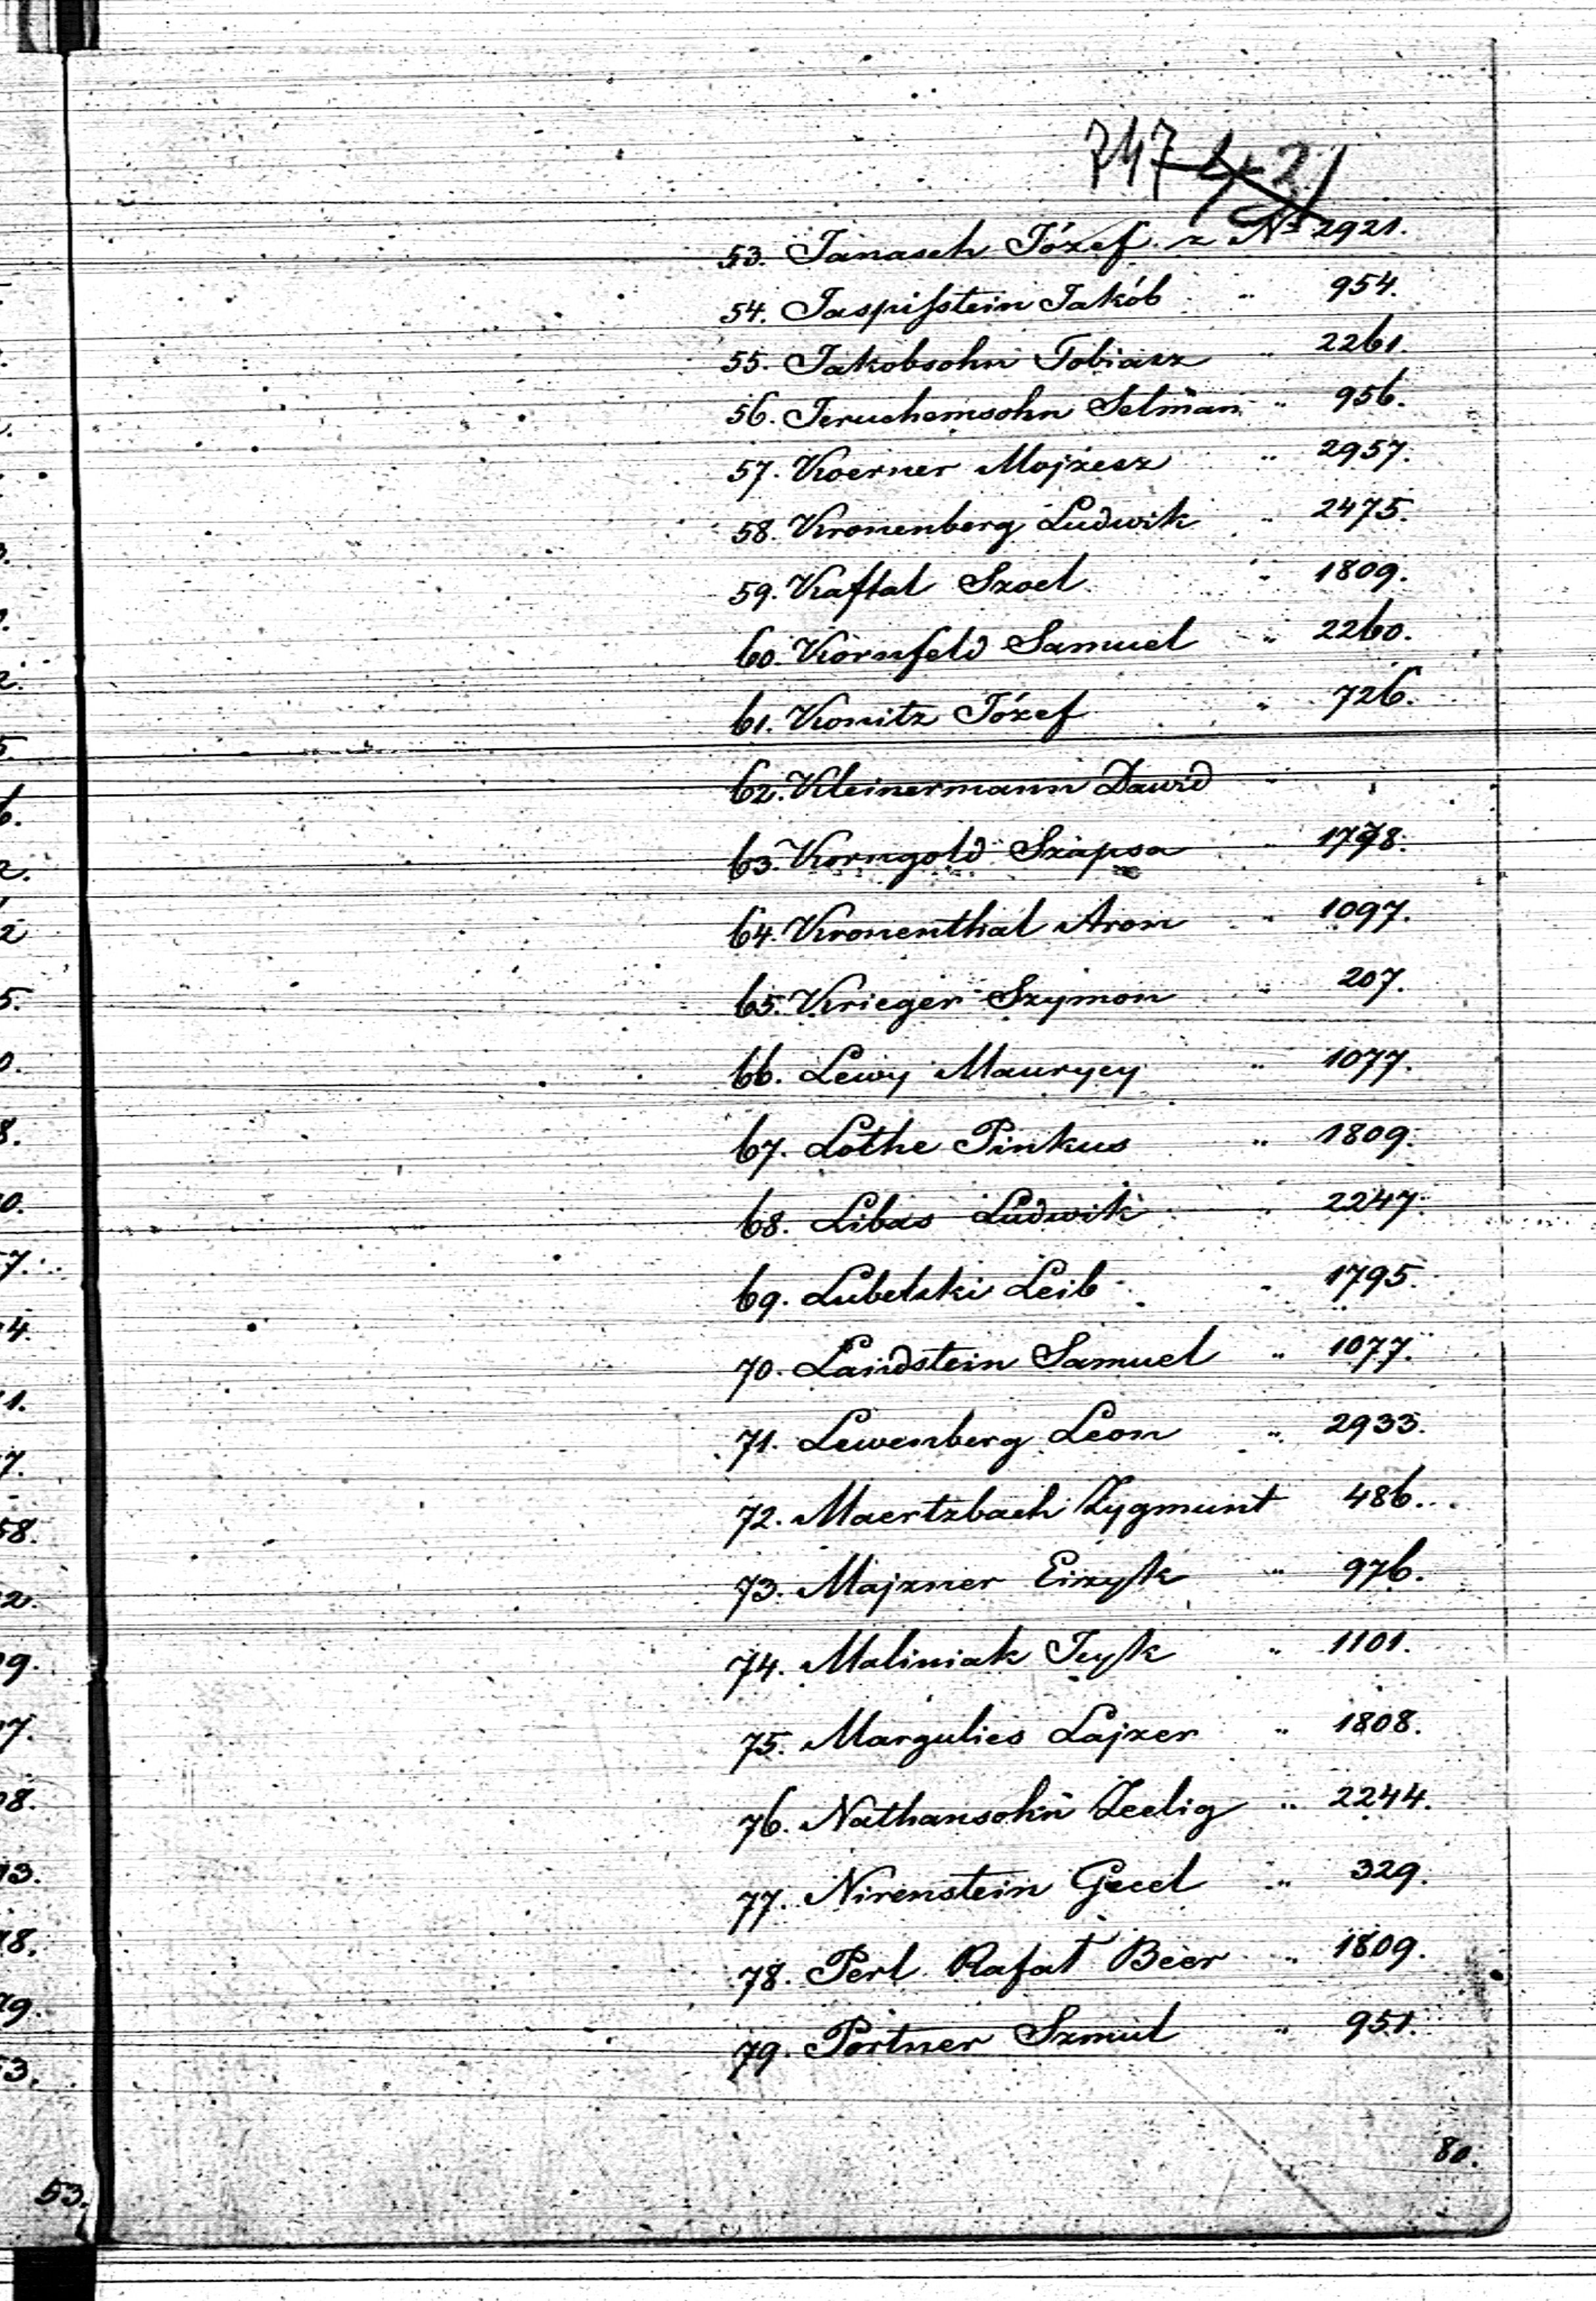 747 421
53. Janasch Józef z № 2921.
54. Jaspiſstein Jakób " 954.
55. Jakobsohn Tobiasz " 2261.
56. Jeruchemsohn Selman " 956.
57. Koerner Mojżesz " 2957.
58. Kronenberg Ludwik " 2475.
59. Kaftal Szoel " 1809.
60. Kornfeld Samuel " 2260.
61. Konitz Józef " 726.
62. Kleinermann Dawid "
63. Korngold Szapsa " 1778.
64. Kronenthal Aron " 1097.
65. Krieger Szymon " 207.
66. Lewy Maurycy " 1077.
67. Lothe Pinkus " 1809.
68. Libas Ludwik " 2247.
69. Lubelski Leib " 1795.
70. Landstein Samuel " 1077.
71. Lewenberg Leon " 2933.
72. Maertzbach Zygmunt 486.
73. Majzner Eizyk " 976.
74. Maliniak Icyk " 1101.
75. Margulies Lajzer " 1808.
76. Nathansohn Zeelig " 2244.
77. Nirenstein Gecel " 329.
78. Perl Rafał Beer " 1809.
79. Portner Szmul " 951.
80.
53.